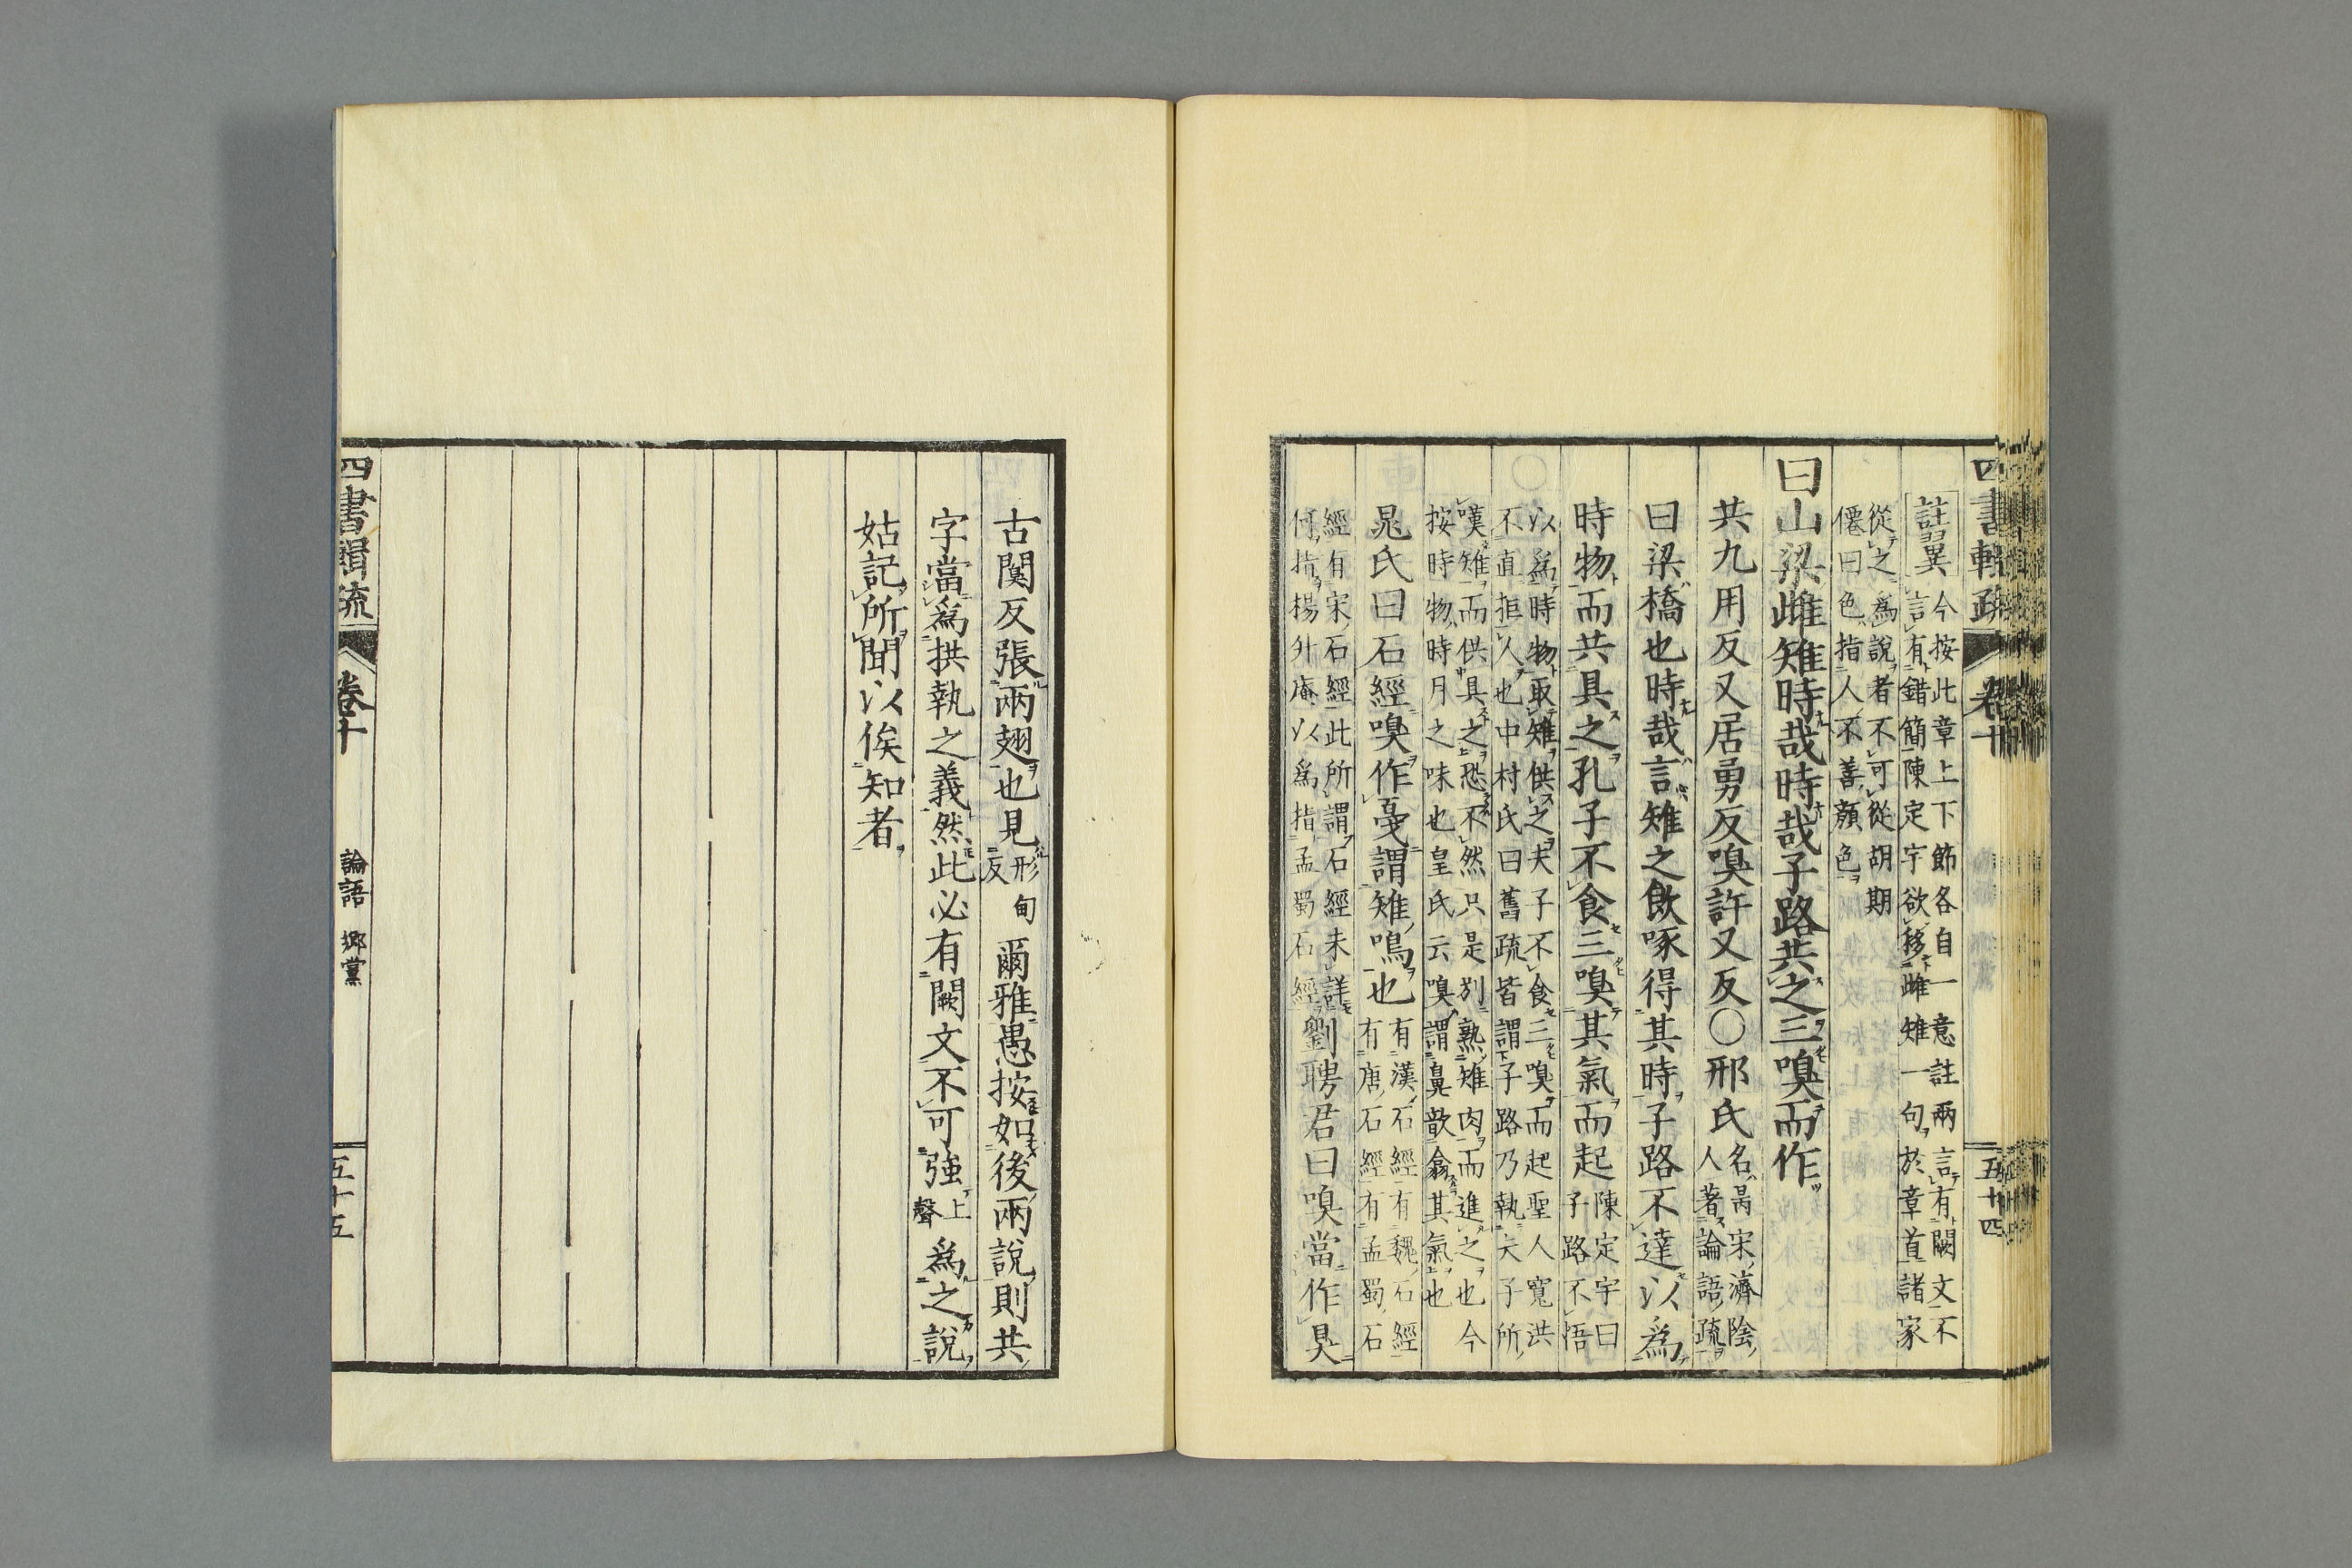 四書輯疏
卷十
五十四
註翼
今按此章上下節各自一意註兩言有闕文不
言有錯簡陳定宇欲移雌雉一句於章首諸家
從之爲說者不可從胡期
僊曰色指人不善顏色
曰山梁雌雉時哉時哉子路共之三嗅而作
共九用反又居勇反嗅許又反〇邢氏
名昺宋濟陰
人著論語疏
曰梁橋也時哉言雉之飲啄得其時子路不達以爲
時物而共具之孔子不食三嗅其氣而起
陳定宇曰
子路不悟
以爲時物取雉供之夫子不食三嗅而起聖人寬洪
不直拒人也中村氏曰舊疏皆謂子路乃執夫子所
嘆雉而供具之恐不然只是別熟雉肉而進之也今
按時物時月之味也皇氏云嗅謂鼻歆翕其氣也
〇
晁氏曰石經嗅作戞謂雉鳴也
有漢石經有魏石經
有唐石經有孟蜀石
經有宋石經此所謂石經未詳
何指楊升庵以爲指孟蜀石經
劉聘君曰嗅當作狊
古闃反張兩翅也見
形甸
反
爾雅愚按如後兩說則共
字當爲拱執之義然此必有闕文不可強
上
聲
爲之說
姑記所聞以俟知者
四書輯疏
卷十
論語 鄉黨
五十五